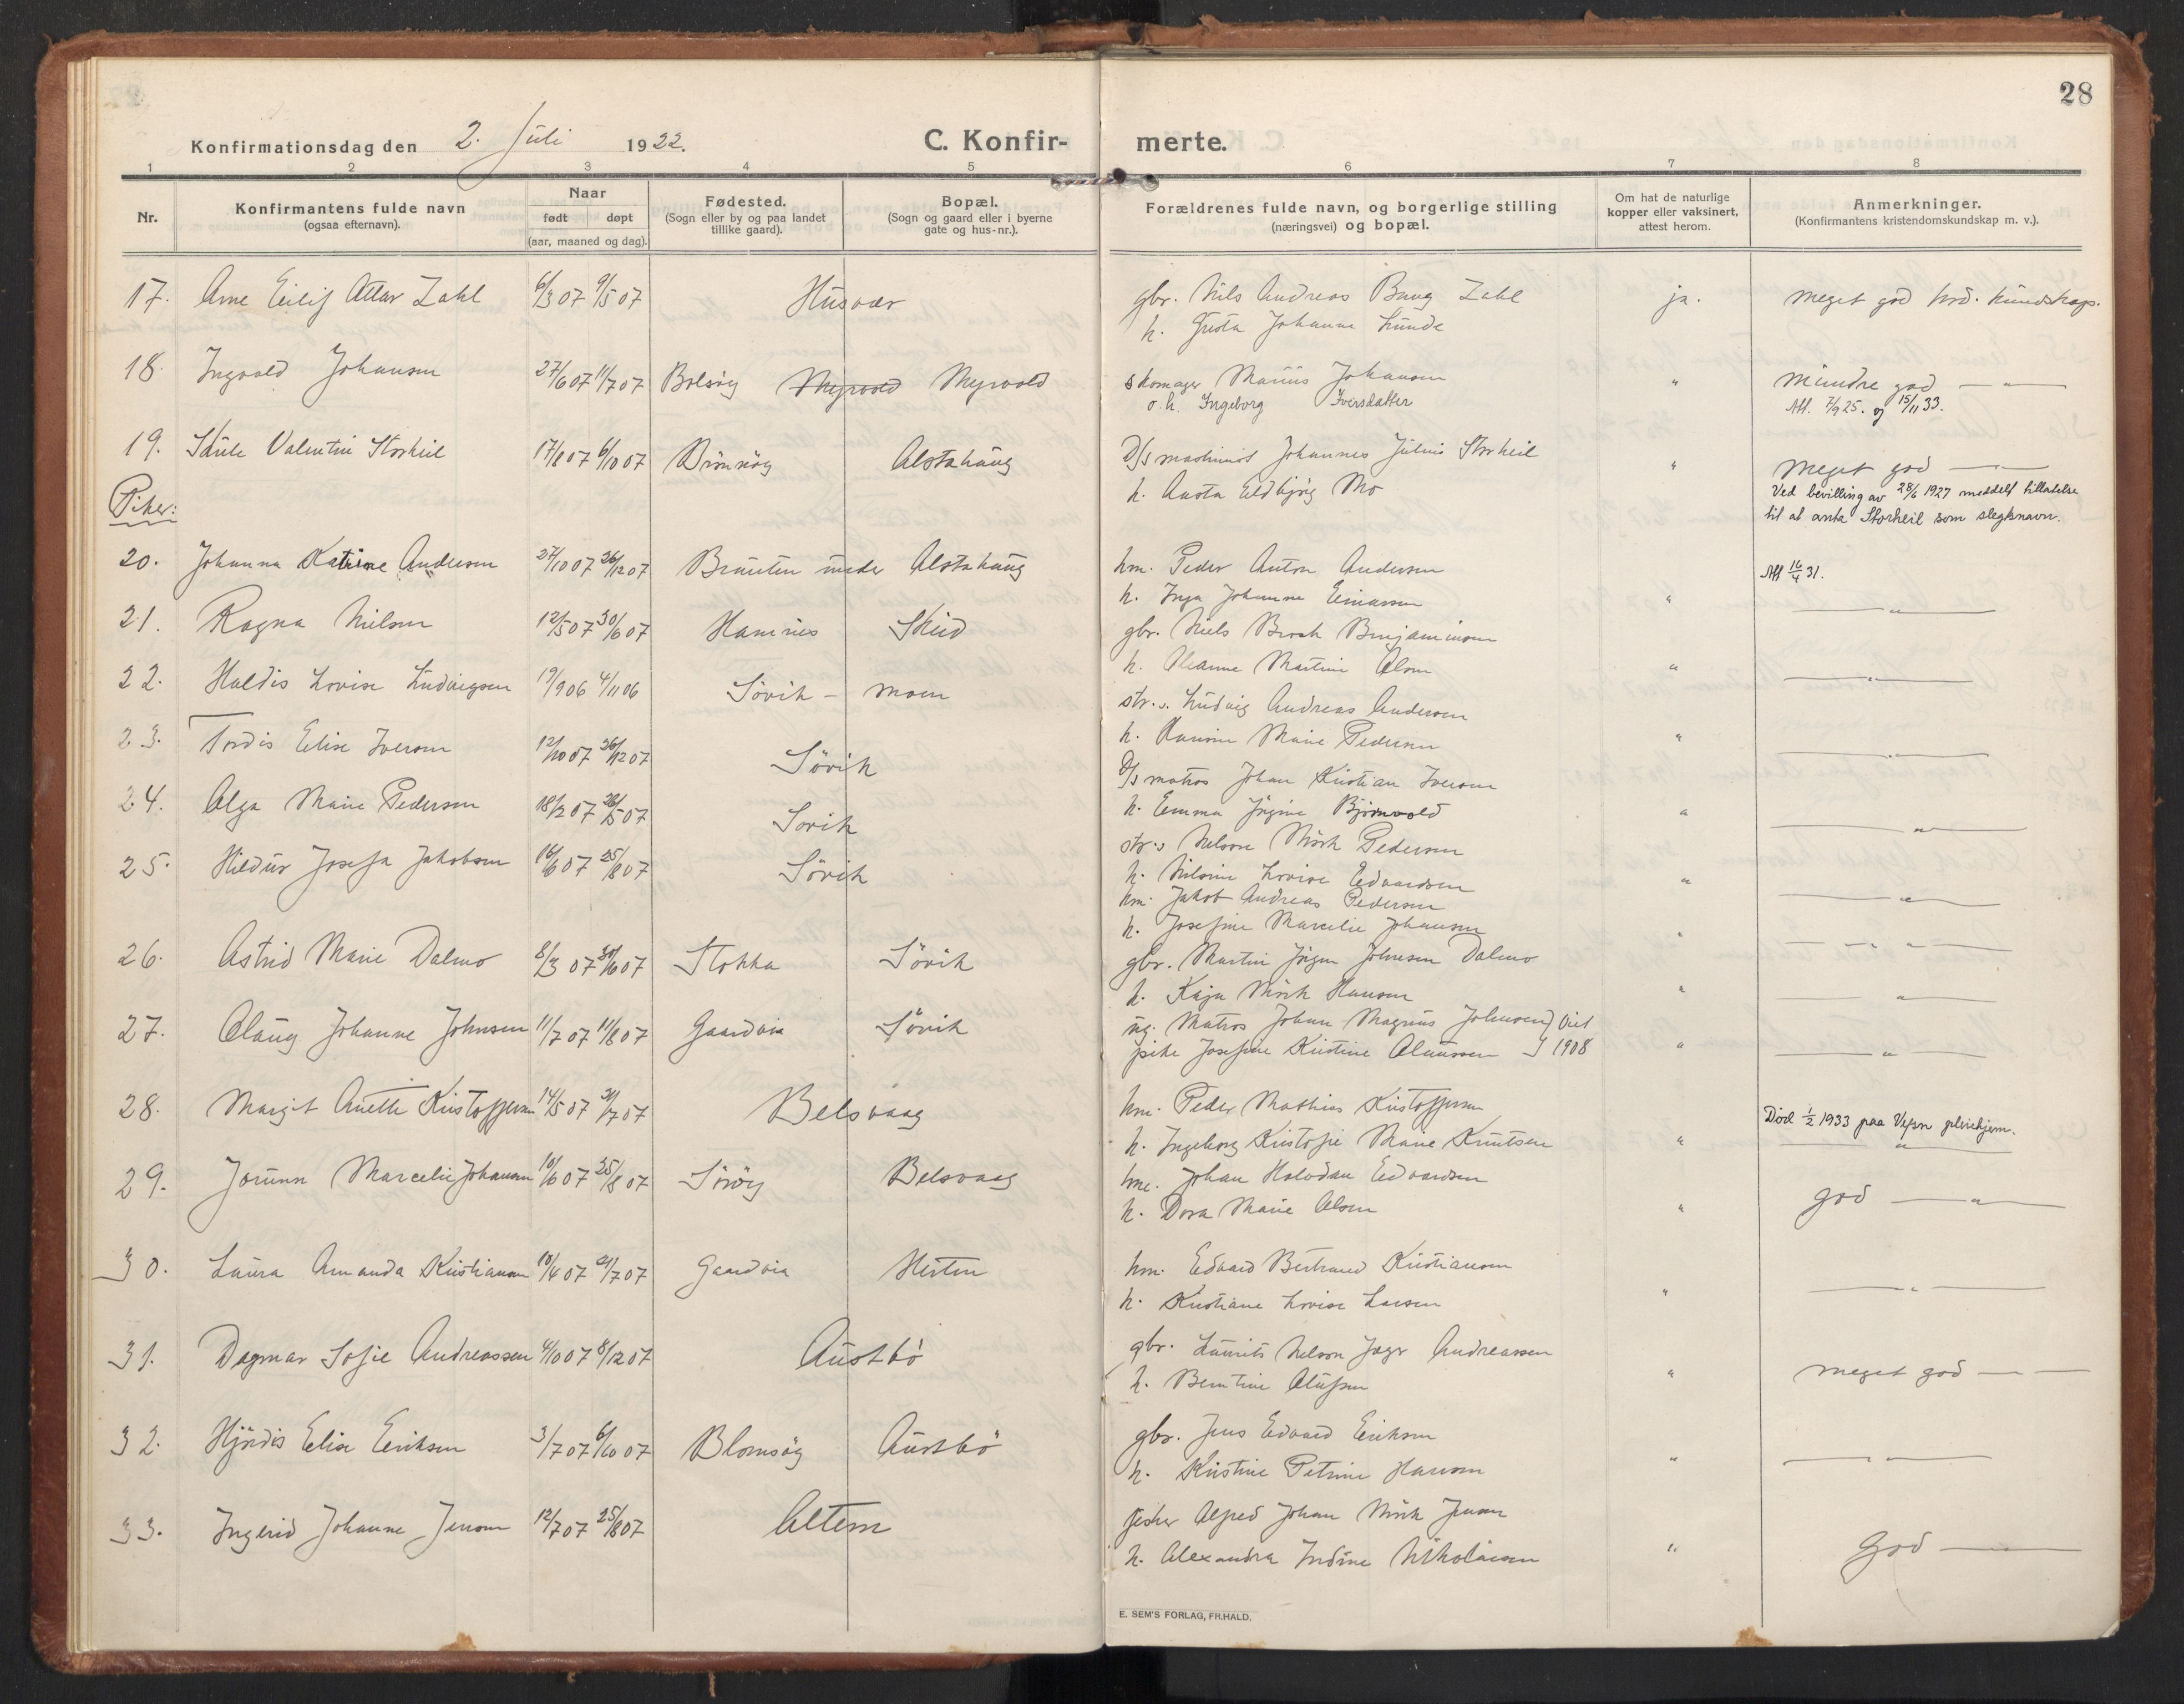 28
Konfirmationsdag den 2. Juli 1922. C. Konfir- merte.
1 2 3 4 5 6 7 8
Nr. Konfirmantens fulde navn (ogsaa efternavn). Naar født døpt (aar, maaned og dag). Fødested. (Sogn eller by og paa landet tillike gaard). Bopæl. (Sogn og gaard eller i byerne gate og hus-nr.). Forældrenes fulde navn, og borgerlige stilling (næringsvei) og bopæl. Om hat de naturlige kopper eller vaksinert, attest herom. Anmerkninger. (Konfirmantens kristendomskundskap m. v.).
17. Arne Eilif Zahl 6/3 07 9/5 07 Husvær gbr. Nils Andreas Bang Zahl ja. meget god krd. kundskap.
h. Johanne Lunde
18. Ingvald Johansen 27/6 07 11/7 07 Bolsöy Myrvold Myrvold skomager Marius Johansen " mindre god — " —
o.h. Ingeborg Iversdatter Att. 7/9 25. og 15/11 33.
19. Skule Valentin Storheil 17/8 07 6/10 07 Brönnöy Alstahaug D/S maskinist Johannes Julius Storheil " meget god — " —
h. Mo Ved bevilling av 28/6 1927 meddelt tillatelse
til at anta Storheil som slegtsnavn.
Piker:
20. Johanna Katrine Andersen 27/10 07 26/12 07 Brauten under Alstahaug hm. Peder Anton Andersen Att 16/4 31.
h. Inga Johanne Einarsen " — " —
21. Ragna Nilsen 12/5 07 30/6 07 Hamnes Skeid gbr. Niels Brosk Benjaminsen
h. Martine Olsen " — " —
22. Haldis Lovise Ludvigsen 19/9 06 4/11 06 Sövik - moen str.s. Ludvig Andreas Andersen
h. Hansine Marie Pedersen " — " —
23. Tordis Elise Iversen 12/10 07 26/12 07 Sövik D/S matros Johan Kristian Iversen
h. Emma Jörgine Björnvold " — " —
24. Olga Marie Pedersen 18/2 07 26/5 07 Sövik str.s Nelson Mörk Pedersen
h. Nilsine Lovise Edvardsen " — " —
25. Hildur Josefa Jakobsen 16/6 07 25/8 07 Sövik hm. Jakob Andreas Pedersen
h. Josefine Marcelie Johansen " — " —
26. Astrid Marie Dalmo 8/3 07 30/6 07 Stokka Sövik gbr. Martin Jörgen Johnsen Dalmo
h. Kaja Mörk Hansen " — " —
27. Olaug Johanne Johnsen 11/7 07 11/8 07 Gaardvia Sövik ug. Matros Johan Magnus Johnsen } Viet
pike Josefine Kristine Olaussen } 1908 " — " —
28. Margit Anette Kristoffersen 14/5 07 21/7 07 Belsvaag hm. Peder Mathias Kristoffersen Död 1/2 1933 paa Vefsn pleiehjem.
h. Ingeborg Kristofie Marie Knutsen " — " —
29. Jorunn Marcelie Johansen 10/6 07 25/8 07 Söröy Belsvaag hm. Johan Halvdan Edvardsen god — " —
h. Dora Marie Olsen "
30. Laura Amanda Kristiansen 10/4 07 21/7 07 Gaardvia Hesten hm. Edvard Bertrand Kristiansen
h. Kristiane Lovise Larsen " — " —
31. Dagmar Sofie Andreassen 4/10 07 8/12 07 Austbö gbr. Laurits Nelson Jager Andreassen
h. Berntine Olufsen " meget god — —
32. Hjördis Elise Eriksen 3/7 07 6/10 07 Blomsöy Austbö gbr. Jens Edvard Eriksen
h. Kristine Petrine Hansen " — " —
33. Ingerid Johanne Jensen 12/7 07 25/8 07 Altern fisker Alfred Johan Mörk Jensen
h. Alexandra Indine Nikolaisen " God —
E. SEM'S FORLAG, FR.HALD.